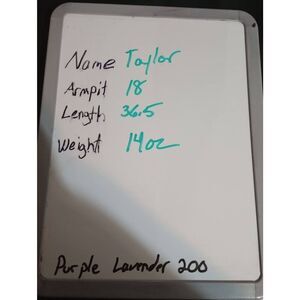 Name Taylor
Armpit 18
Length 36.5
Weight 14oz
Purple Lavender 200